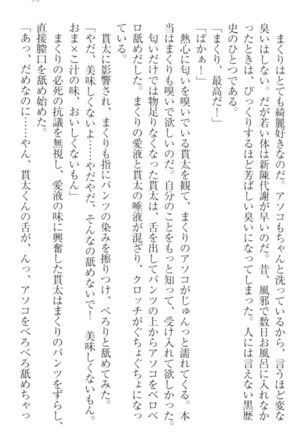 まくりはとても綺麗好きなのだ。アソコもちゃんと洗っているから、言うほど変な
臭いはしない。だが若い体は新陳代謝が早いのだ。昔、風邪で数日お風呂に入れなか
ったときは、びっくりするほど芳ばしい臭いになってしまった。人には言えない黒歴
史のひとつである。
「まくり、最高だ！」
「ばかぁ！」
熱心に匂いを嗅いでいる貫太を観て、まくりのアソコがじゅんっと濡れてくる。本
当はまくりも嗅いで欲しいのだ。自分のことをもっと知って、受け入れて欲しかった。
匂いだけでは物足りなくなった貫太は、舌を出してパンツの上からアソコをベロベ
ロ舐めだした。まくりの愛液と貫太の唾液が混ざり、クロッチがぐちょぐちょになっ
ている。
貫太に影響され、まくりも指にパンツの染みを擦りつけ、ぺろりと舐めてみた。
「やだ、美味しくないよ……やだやだ、そんなの舐めないで！　美味しくないもん。
おま×こ汁の味、おいしくないもん」
まくりの必死の抗議を無視し、愛液の味に興奮した貫太はまくりのパンツをずらし、
直接膣口を舐め始めた。
「あっ、だめなのに……やん、貫太くんの舌が、んっ、アソコをぺろぺろ舐めちゃっ